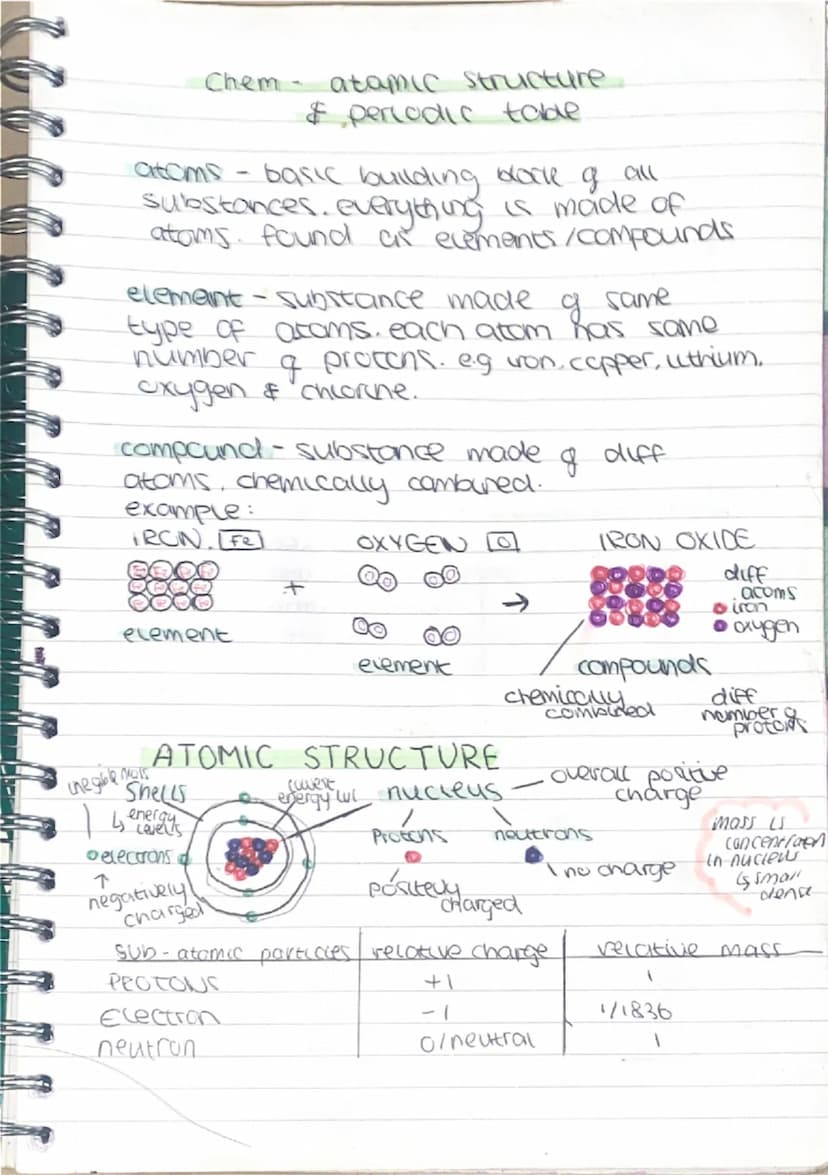 Chem - atomic structure
& periodic table
atoms - basic building block of all
substances. everything is made of
atoms. found as elements/compounds
element - substance made of same
type of atoms. each atom has same
number of protons. e.g iron, copper, lithium,
oxygen & chlorine.
compound - substance made of diff
atoms, chemically combined.
example:
IRON. Fe
OXYGEN O
IRON OXIDE
+
→
diff
atoms
iron
oxygen
element
element
compounds
chemically
combined
diff
number of
protons
ATOMIC STRUCTURE
shells
↳ energy
levels
electrons
↑
negatively
charged
lowest
energy lvl
nucleus
overall positive
charge
Protons
positively
charged
neutrons
no charge
mass is
concentrated
in nucleus
↳ small
dense
sub-atomic particles relative charge relative mass
PROTONS +1 1
Electron -1 1/1836
neutron 0/neutral 1